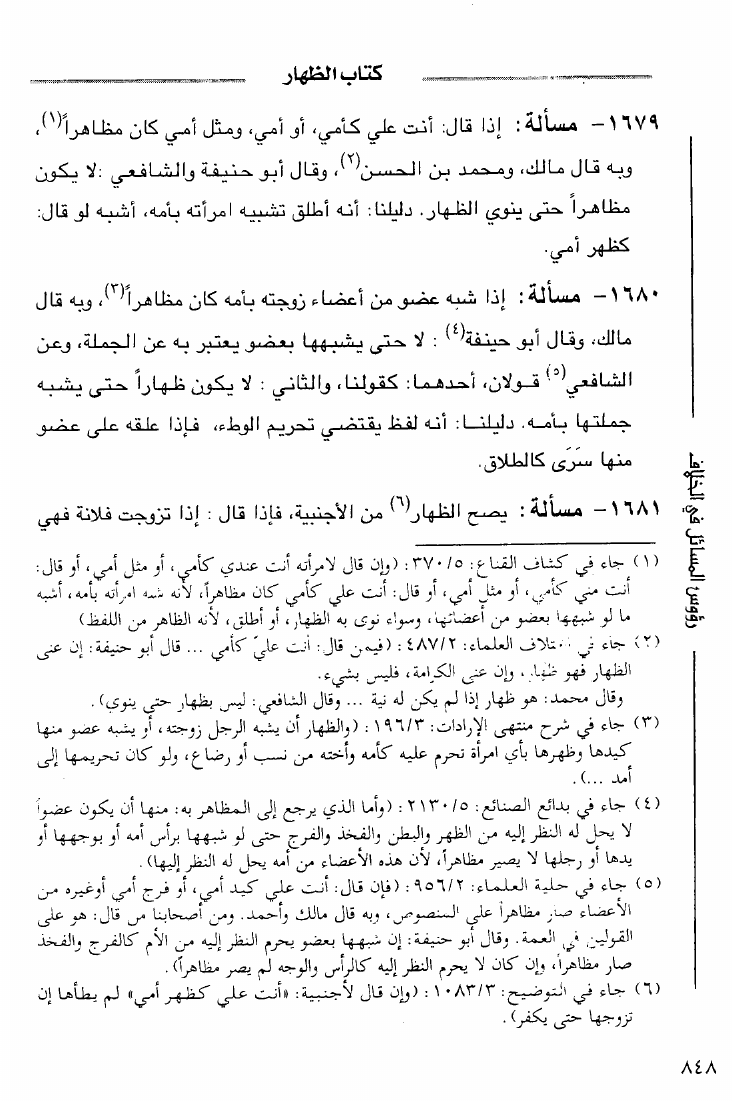 كتاب الظهار
١٦٧٩- مسألة: إذا قال: أنت علي كأمي، أو أمي، ومثل أمي كان مظاهراً(١)،
وبه قال مالك، ومحمد بن الحسن(٢)، وقال أبو حنيفة والشافعي :لا يكون
مظاهراً حتى ينوي الظهار. دليلنا: أنه أطلق تشبيه امرأته بأمه، أشبه لو قال:
كظهر أمي.
١٦٨٠- مسألة: إذا شبه عضو من أعضاء زوجته بأمه كان مظاهراً(٣)، وبه قال
مالك، وقال أبو حينفة(٤) : لا حتى يشبهها بعضو يعتبر به عن الجملة، وعن
الشافعي(٥) قولان، أحدهما: كقولنا، والثاني : لا يكون ظهاراً حتى يشبه
جملتها بأمه. دليلنا: أنه لفظ يقتضي تحريم الوطء، فإذا علقه على عضو
منها سَرَى كالطلاق.
١٦٨١- مسألة: يصح الظهار(٦) من الأجنبية، فإذا قال : إذا تزوجت فلانة فهي
(١) جاء في كشاف القناع: ٣٧٠/٥: (وإن قال لامرأته أنت عندي كأمي، أو مثل أمي، أو قال:
أنت مني كأمي، أو مثل أمي، أو قال: أنت علي كأمي كان مظاهراً، لأنه شبه امرأته بأمه، أشبه
ما لو شبهها بعضو من أعضائها، وسواء نوى به الظهار، أو أطلق، لأنه الظاهر من اللفظ)
(٢) جاء في اختلاف العلماء: ٤٨٧/٢: (فيمن قال: أنت عليّ كأمي ... قال أبو حنيفة: إن عنى
الظهار فهو ظهار، وإن عنى الكرامة، فليس بشيء.
وقال محمد: هو ظهار إذا لم يكن له نية ... وقال الشافعي: ليس بظهار حتى ينوي).
(٣) جاء في شرح منتهى الإرادات: ١٩٦/٣: (والظهار أن يشبه الرجل زوجته، أو يشبه عضو منها
كيدها وظهرها بأي امرأة تحرم عليه كأمه وأخته من نسب أو رضاع، ولو كان تحريمها إلى
أمد ...).
(٤) جاء في بدائع الصنائع: ٢١٣٠/٥: (وأما الذي يرجع إلى المظاهر به: منها أن يكون عضواً
لا يحل له النظر إليه من الظهر والبطن والفخذ والفرج حتى لو شبهها برأس أمه أو بوجهها أو
يدها أو رجلها لا يصير مظاهراً، لأن هذه الأعضاء من أمه يحل له النظر إليها).
(٥) جاء في حلية العلماء: ٩٥٦/٢: (فإن قال: أنت علي كيد أمي، أو فرج أمي أوغيره من
الأعضاء صار مظاهراً على المنصوص، وبه قال مالك وأحمد. ومن أصحابنا من قال: هو على
القولين في العمة. وقال أبو حنيفة: إن شبهها بعضو يحرم النظر إليه من الأم كالفرج والفخذ
صار مظاهراً، وإن كان لا يحرم النظر إليه كالرأس والوجه لم يصر مظاهراً).
(٦) جاء في التوضيح: ١٠٨٣/٣: (وإن قال لأجنبية: «أنت علي كظهر أمي» لم يطأها إن
تزوجها حتى يكفر).
رؤوس المسائل في الخلاف
٨٤٨